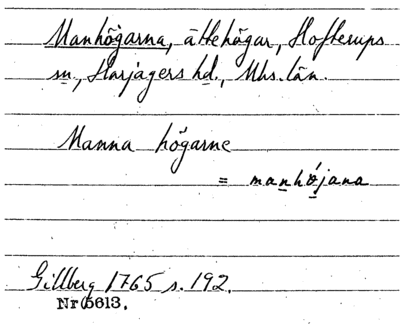 Manhögarna, ättehögar, Hofterups
sn., Harjagers hd., Mhs. län.
Manna högarne
= manhöjana
Gillberg 1765 s. 192.
Nr 5613.